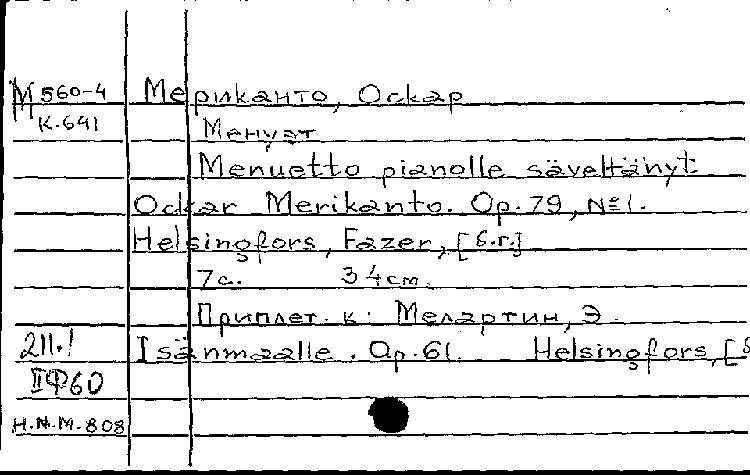 М 560-4 Мериканто, Оскар
К.641 Менуэт
Menuetto pianolle säveltänyt
Oskar Merikanto. Op. 79, №1.
Helsingfors, Fazer, [б.г.]
7с. 34cm.
Приплет. к: Мелартин, Э.
211.1 Isänmaalle. Op. 61. Helsingfors, [б
IIФ60
Н.М.М-808